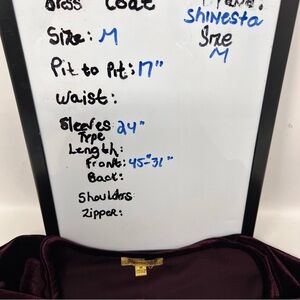 Dress Coat
Brand:
Shinesta
Size: M
Size
M
Pit to Pit: 17"
Waist:
Sleeves 24"
Type
Length:
Front: 45-31"
Back:
Shoulders
Zipper: